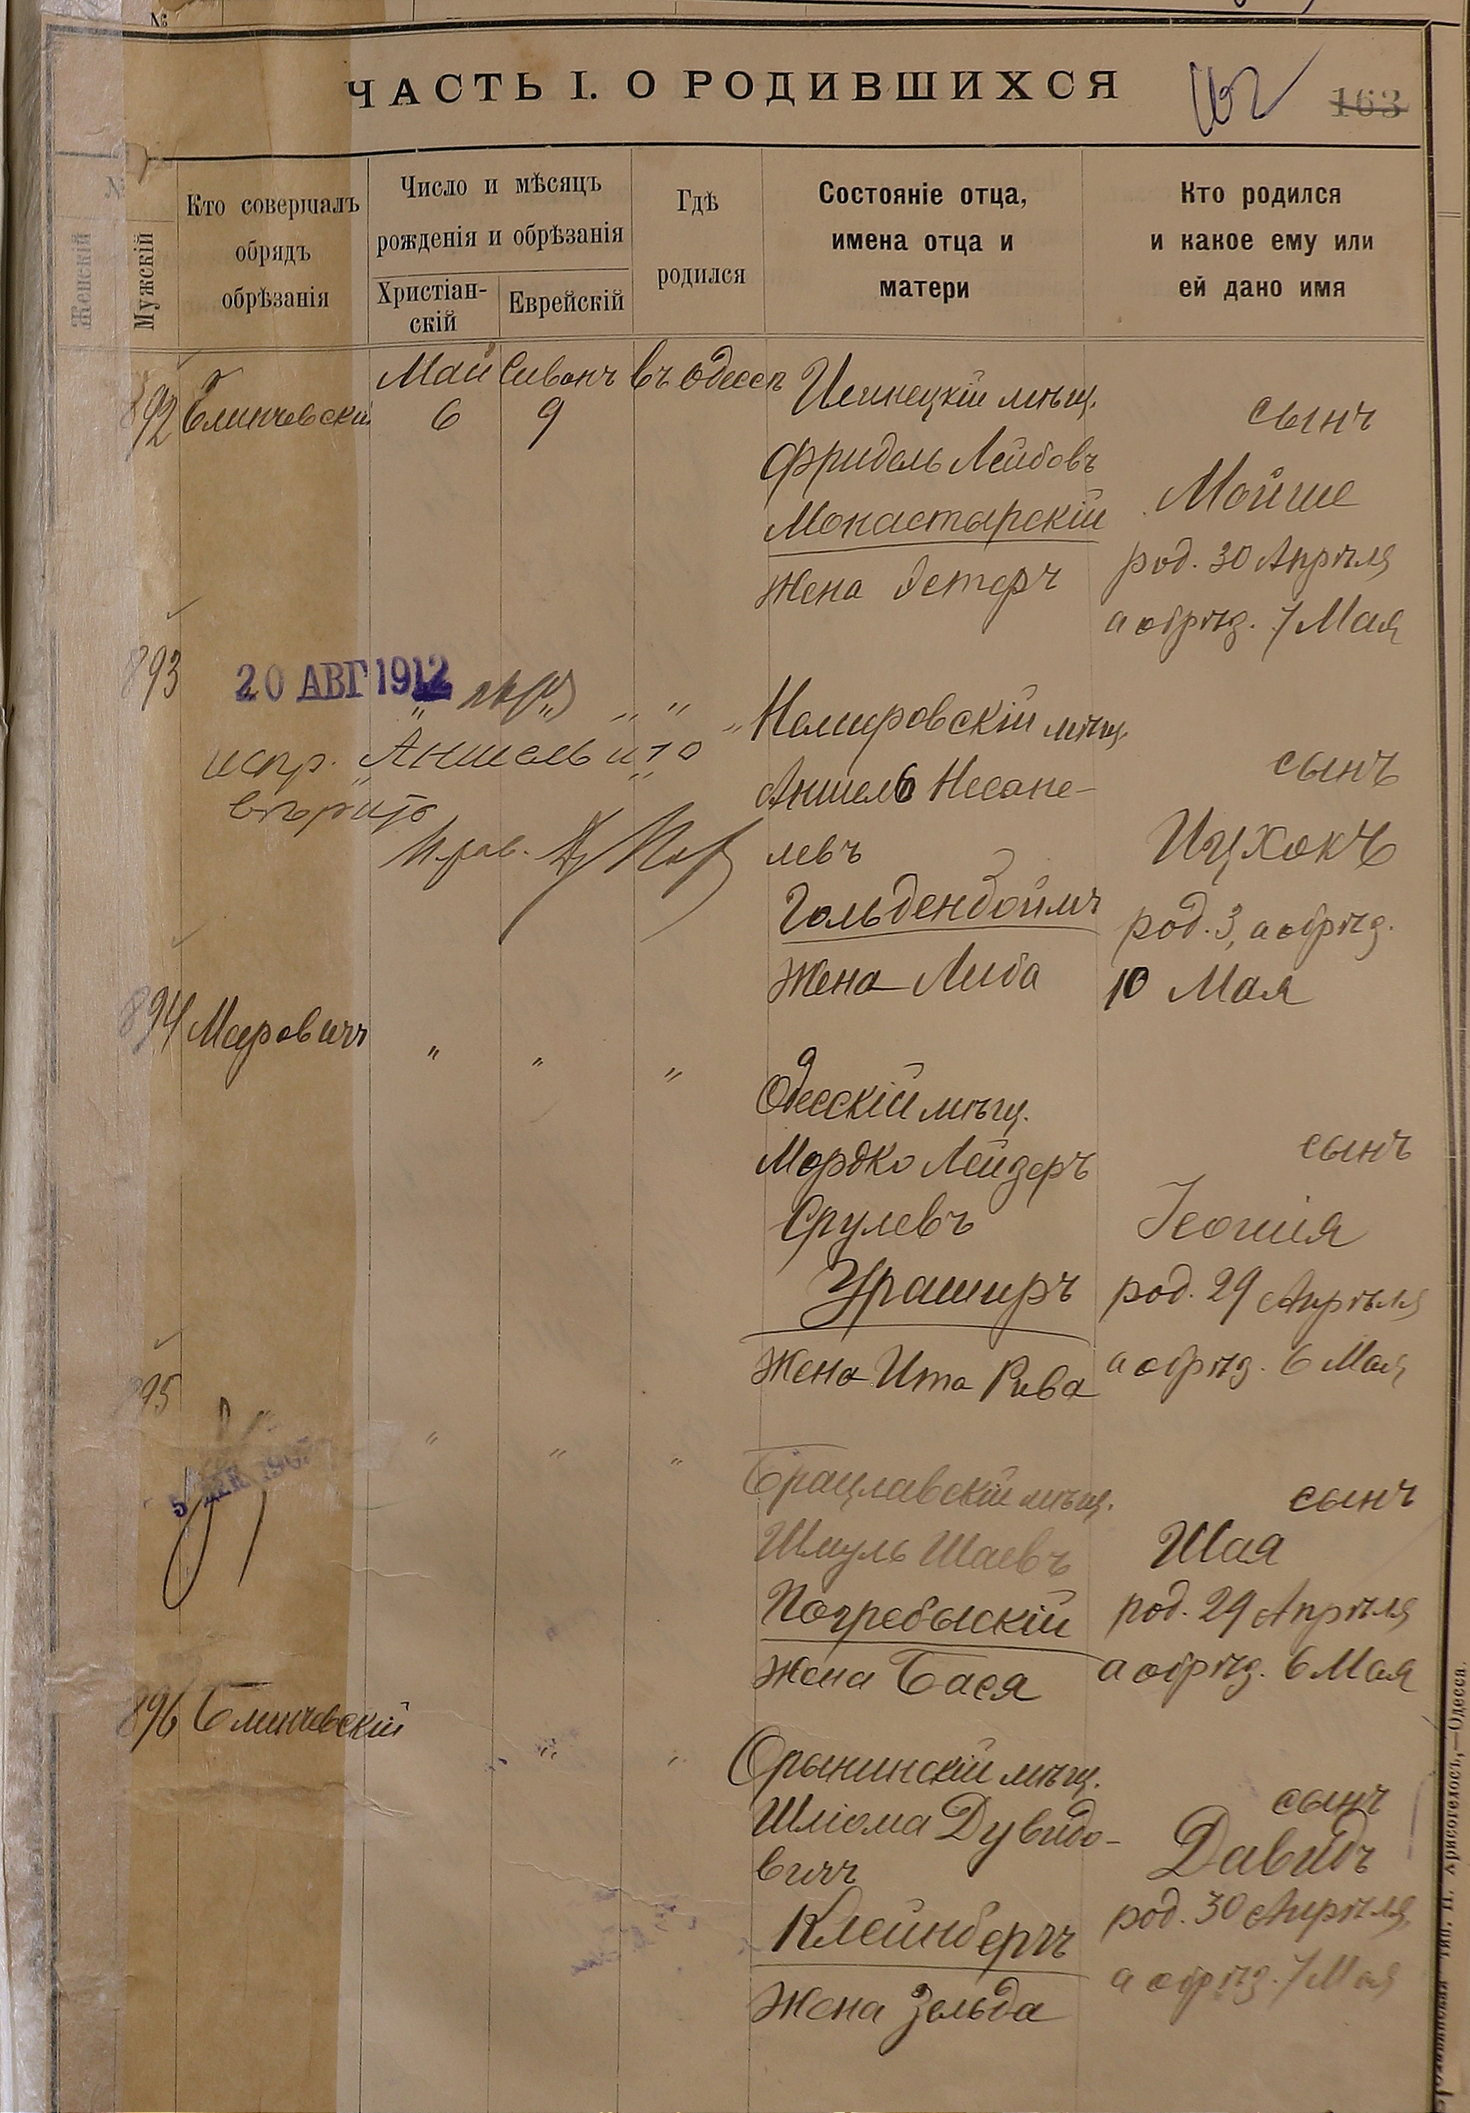 ЧАСТЬ I. О РОДИВШИХСЯ
162 163
Женскій
Мужскій
Кто совершалъ
обрядъ
обрѣзанія
Число и мѣсяцъ
рожденія и обрѣзанія
Христіан-
скій
Еврейскій
Гдѣ
родился
Состояніе отца,
имена отца и
матери
Кто родился
и какое ему или
ей дано имя
892 Блинчевскій
Май Сиванъ въ Одессѣ
6 9
мѣщ.
Фридель Лейбовъ
Монастырскій
Жена Эстеръ
сынъ
Мойше
род. 30 Апрѣля
а обрѣз. 7 Мая
893
20 АВГ 1912
испр. Аншель и 10
вѣрить
" " "
Немировскій мѣщ.
Аншель Несане-
левъ
Гольденбоймъ
Жена Либа
сынъ
Ицхокъ
род. 3, а обрѣз.
10 Мая
894 Меровичъ
" " "
Одесскій мѣщ.
Мордко Лейзеръ
Срулевъ
Ураширъ
Жена Ита Рива
сынъ
Іеошія
род. 29 Апрѣля
а обрѣз. 6 Мая
895
" " "
Брацлавскій мѣщ.
Шмуль Шаевъ
Погребыскій
Жена Бася
сынъ
Шая
род. 29 Апрѣля
а обрѣз. 6 Мая
896 Блинчевскій
" "
Орынинскій мѣщ.
Шліома Дувидо-
вичъ
Клейнбергъ
Жена Зельда
сынъ
Давидъ
род. 30 Апрѣля
а обрѣз. 7 Мая
тип. Н. Хрисогелосъ,—Одесса.